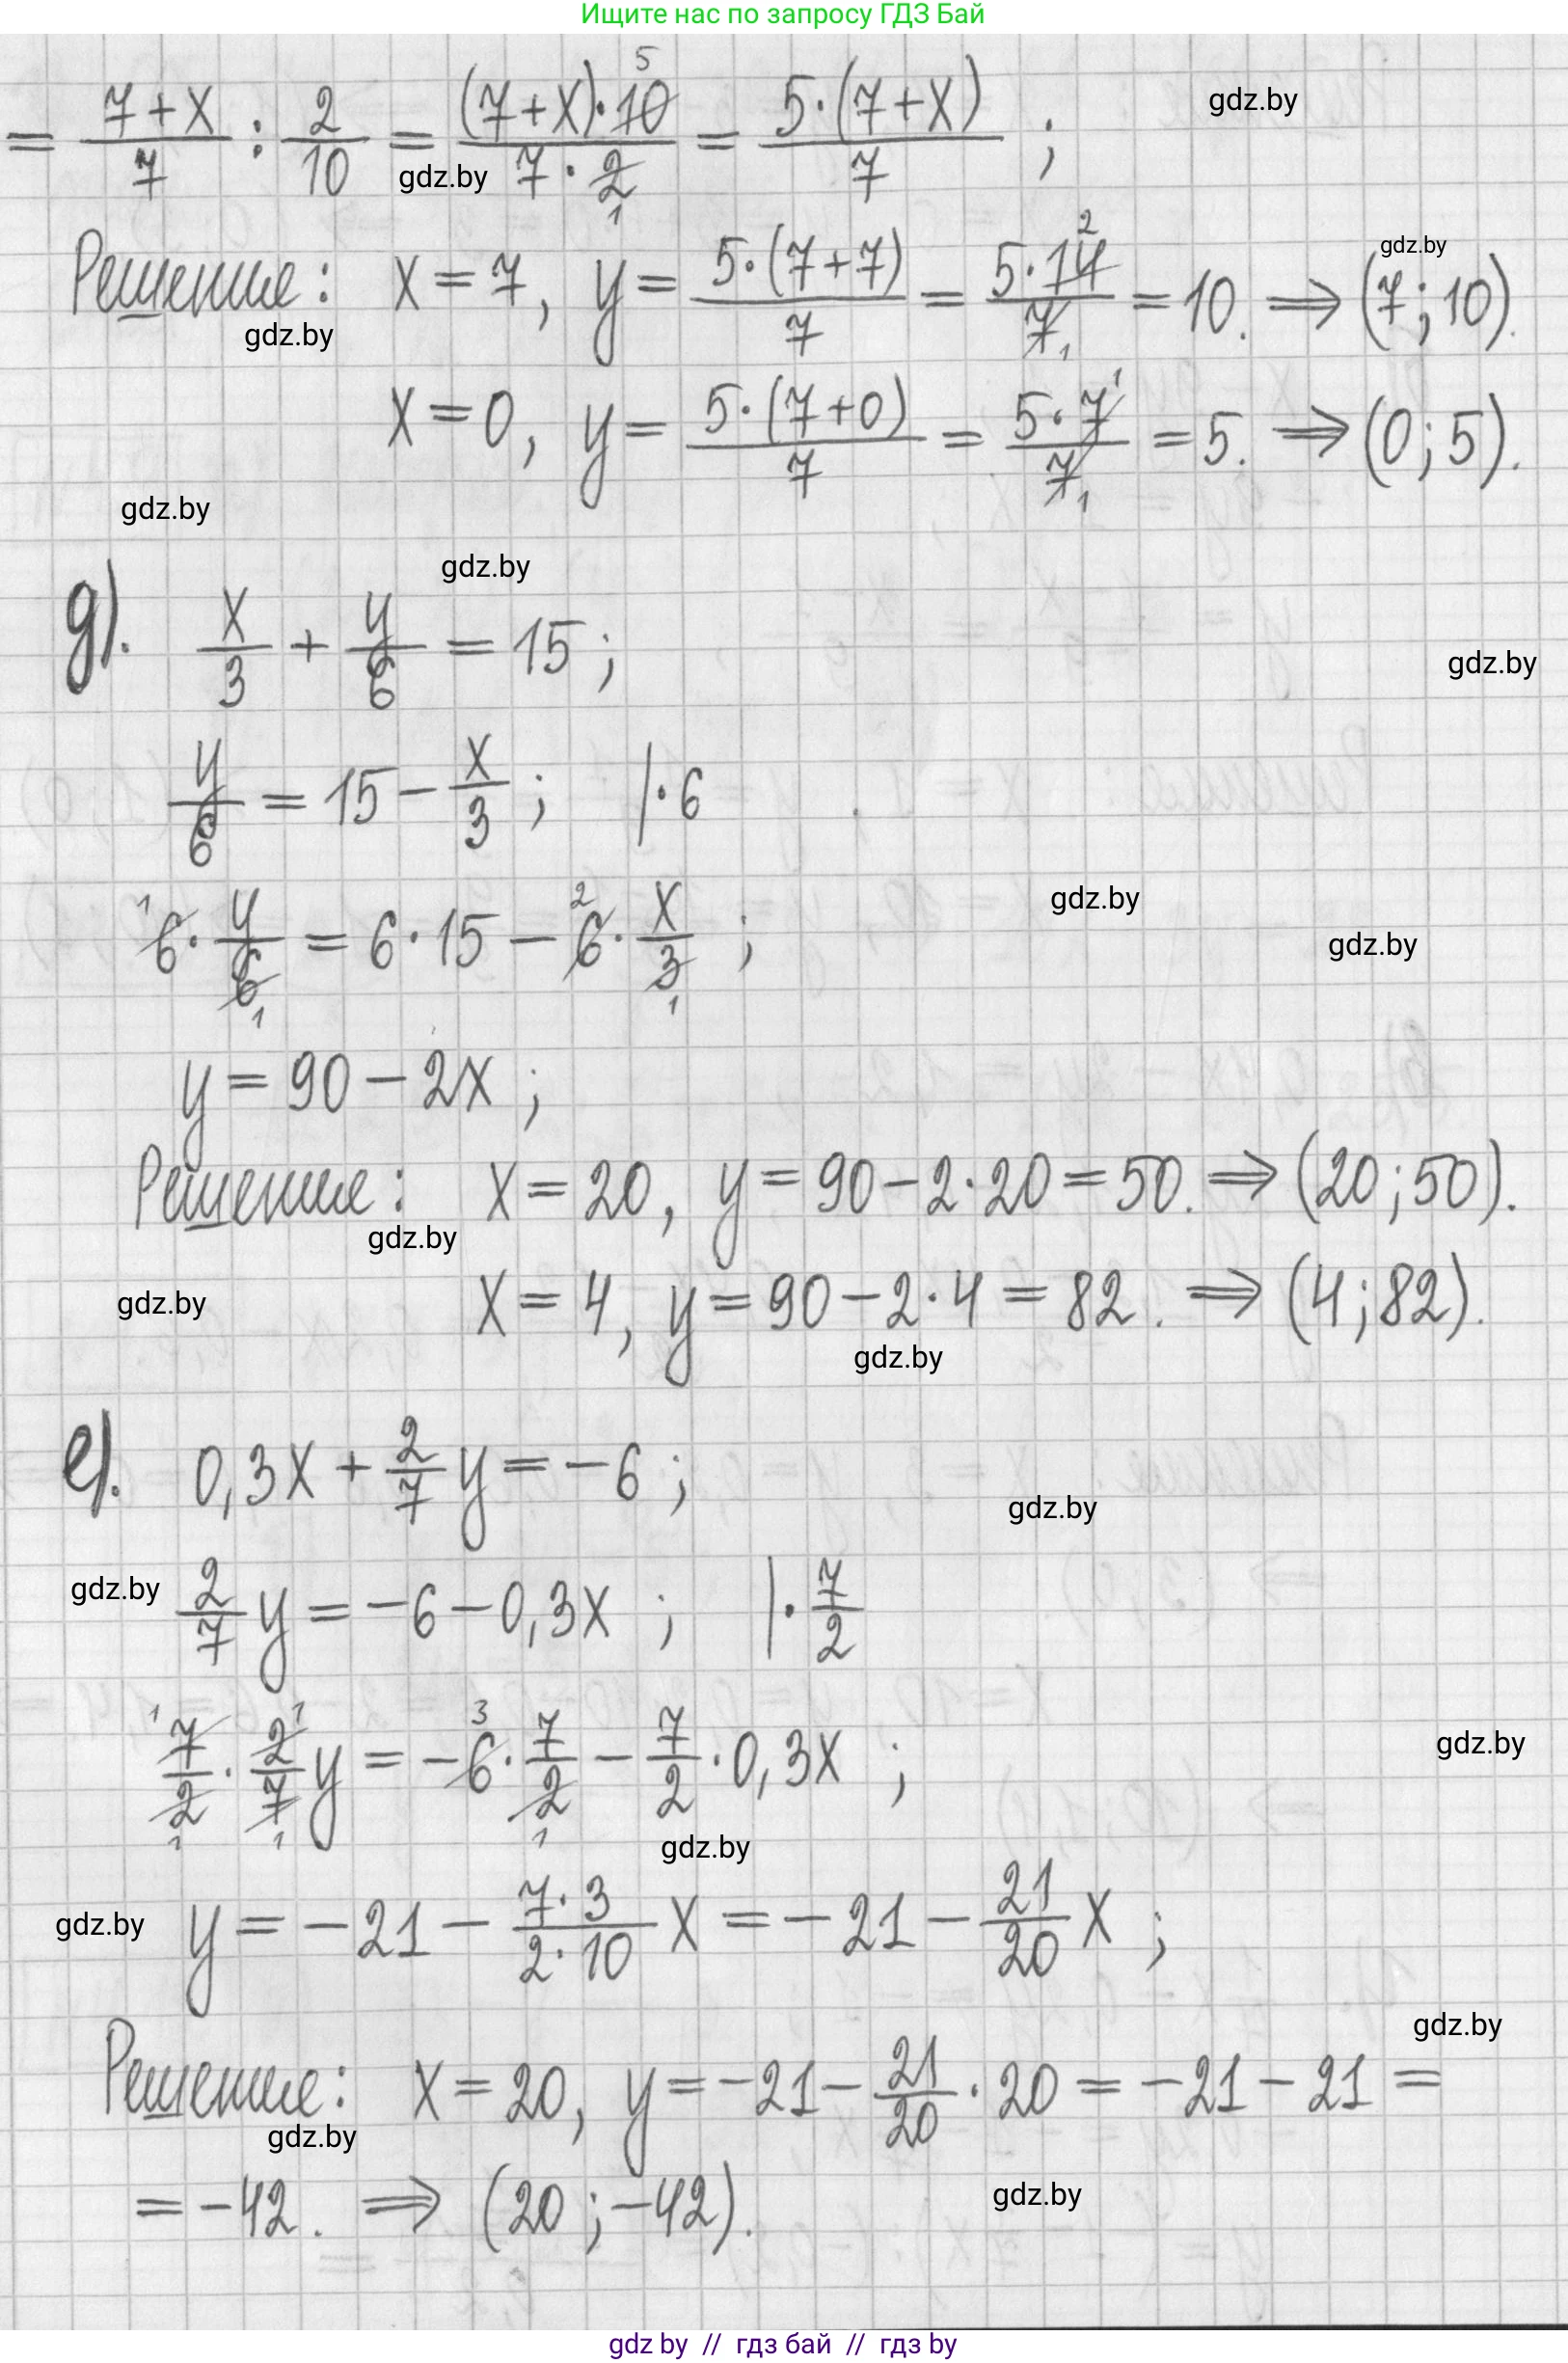 Ищите нас по запросу ГДЗ Бай
gdz.by
= (7+x)/7 : 2/10 = ((7+x)·10)/(7·2) = (5·(7+x))/7 ;
5
1
gdz.by
2
gdz.by
Решение: x = 7, y = (5·(7+7))/7 = (5·14)/7 = 10. ⇒ (7; 10).
1
gdz.by
1
x = 0, y = (5·(7+0))/7 = (5·7)/7 = 5. ⇒ (0; 5).
1
gdz.by
gdz.by
д). x/3 + y/6 = 15 ;
gdz.by
y/6 = 15 - x/3 ; |·6
1 2
6· y/6 = 6·15 - 6· x/3 ;
1 1
gdz.by
gdz.by
y = 90 - 2x ;
Решение: x = 20, y = 90 - 2·20 = 50. ⇒ (20; 50).
gdz.by
x = 4, y = 90 - 2·4 = 82. ⇒ (4; 82).
gdz.by
gdz.by
е). 0,3x + 2/7 y = -6 ;
gdz.by
gdz.by
2/7 y = -6 - 0,3x ; |· 7/2
1 1 3
7/2 · 2/7 y = -6· 7/2 - 7/2 ·0,3x ;
1 1 1
gdz.by
gdz.by
gdz.by
y = -21 - (7·3)/(2·10) x = -21 - 21/20 x ;
gdz.by
Решение: x = 20, y = -21 - 21/20 · 20 = -21 - 21 =
gdz.by
= -42. ⇒ (20; -42).
gdz.by
gdz by // гдз бай // гдз by